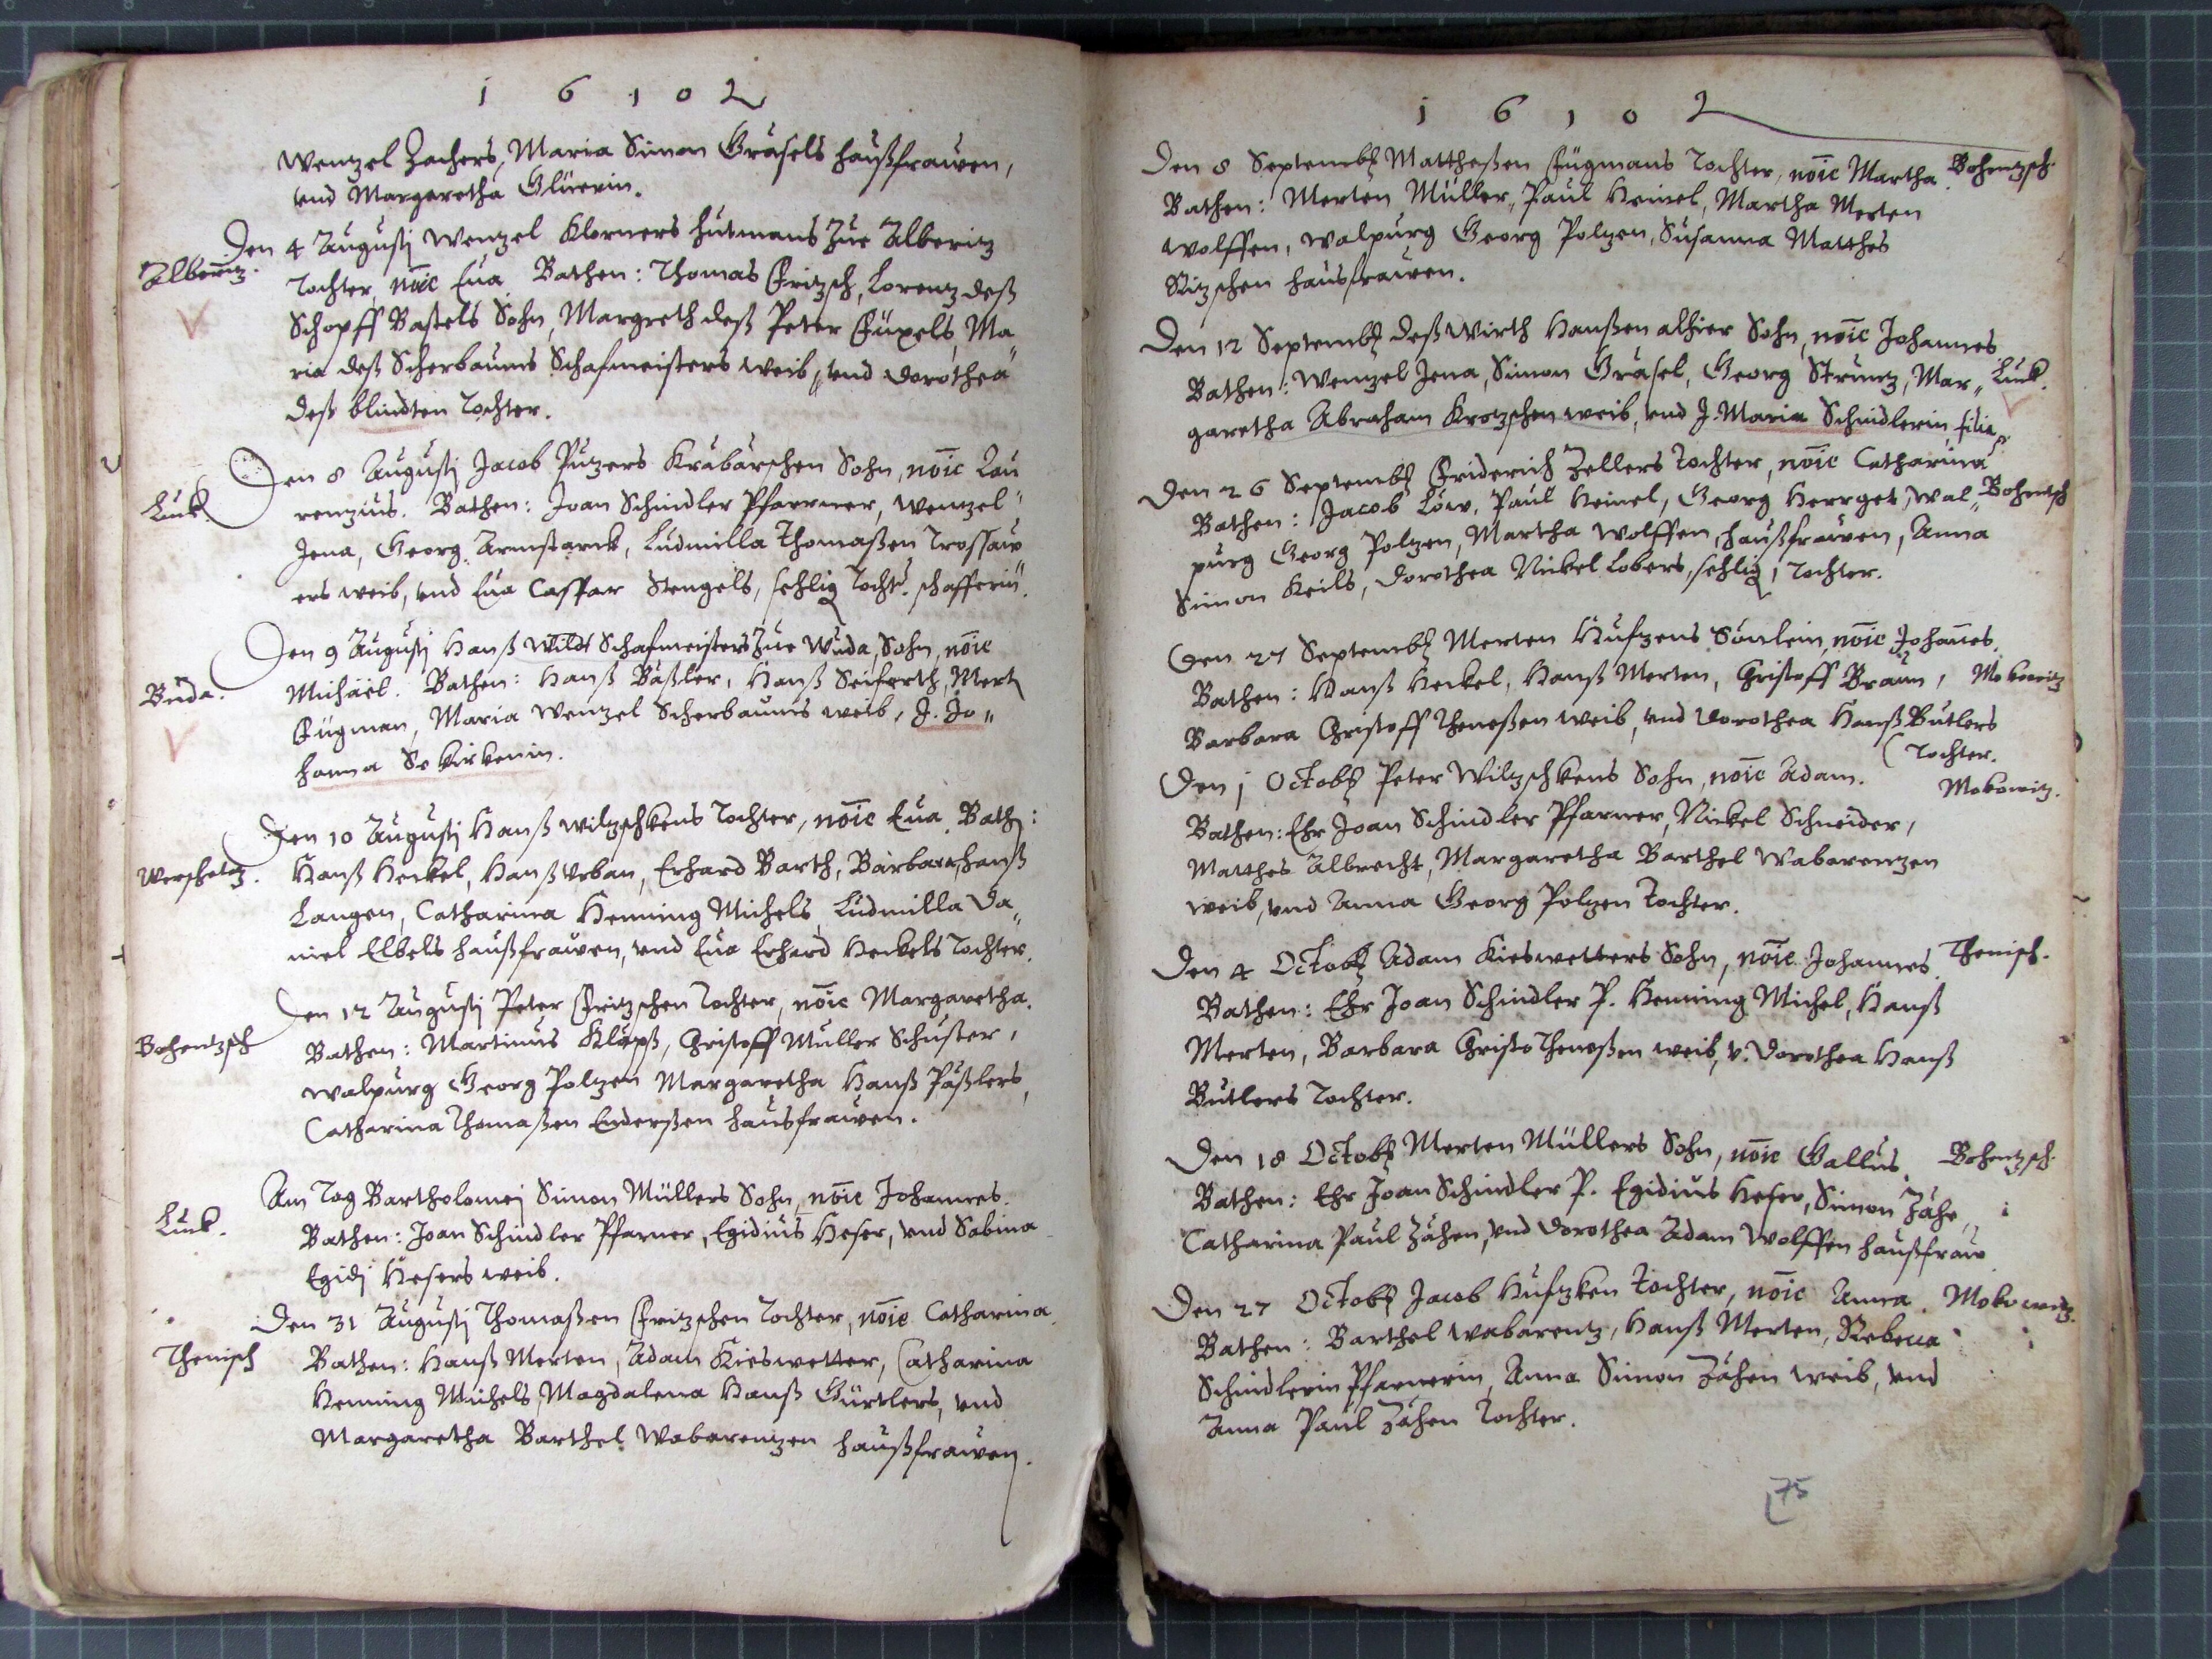 1 6 1 0 2
Wentzel Zachers, Maria Simon Gräsels haußfrawen,
vnd Margaretha Glüerin.
Den 4 Augustj Wentzel Klorners hutmans Zue Alberitz
Alberitz.
Tochter, nōie Eua. Bathen: Thomas Fritzsch, Lorentz deß
Schopff Bastels Sohn, Margreth deß Peter Füxels, Ma„
ria deß Scherbaums Schafmeisters weib, vnd Dorothea
deß blindten Tochter.
Den 8 Augustj Jacob Putzers Kräbärschen Sohn, nōie Lau
Luck.
rentzius. Bathen: Joan Schindler Pfarrner, Wentzel
Jena, Georg Armstarck, Ludmilla Thomaßen Trossaw
ers weib, vnd Eua Caspar Stengels, sehlig Tocht. schafferin.
Den 9 Augustj Hanß Wildt Schafmeisters Zue Wuda, Sohn, nōie
Buda.
Michäel. Bathen: Hanß Bäßler, Hanß Seiferth, Mert
Fügman, Maria Wentzel Scherbaums weib, J. Jo„
hanna Sekirkenin.
Den 10 Augustj Hanß Wiltzschkens Tochter, nōie Eua. Bath:
Werschetitz.
Hanß Heckel, Hanß Vrban, Erhard Barth, Barbara Hanß
Langen, Catharina Henning Michels, Ludmilla Da„
niel Elbels haußfrawen, vnd Eua Erhard Heckels Tochter.
Den 12 Augustj Peter Fritzschen Tochter, nōie Margaretha.
Bohentzsch
Bathen: Martinus Kläpß, Christoff Müller Schuster,
Walpurg Georg Poltzen Margaretha Hanß Päßlers,
Catharina Thomaßen Enderßen hausfrawen.
Am Tag Bartholomej Simon Müllers Sohn, nōie Johannes.
Luck.
Bathen: Joan Schindler Pfarner, Egidius Heser, vnd Sabina
Egidj Hesers weib.
Den 31 Augustj Thomaßen Fritzschen Tochter, nōie Catharina.
Thenisch
Bathen: Hanß Merten, Adam Kieswetter, Catharina
Henning Michels, Magdalena Hanß Gürtlers, vnd
Margaretha Barthel Wabarentzen haußfrawen.
1 6 1 0 2
Den 8 Septemb. Mattheßen Fügmans Tochter, nōie Martha. Bohentzsch.
Bathen: Merten Müller, Paul Heinel, Martha Merten
Wolffen, Walpurg Georg Poltzen, Susanna Matthes
Ritzschen hausfrawen.
Den 12 Septemb. deß Wirth Hanßen alhier Sohn, nōie Johannes
Bathen: Wentzel Jena, Simon Gräsel, Georg Struntz, Mar„ Luck.
garetha Abraham Krotzschen weib, vnd J. Maria Schindlerin, filia.
Den 26 Septemb. Friderich Zellers Tochter, nōie Catharina
Bathen: Jacob Löw, Paul Heinel, Georg Herrget, Wal„ Bohentsch
purg Georg Poltzen, Martha Wolffen, haußfrawen, Anna
Simon Keils, Dorothea Nickel Lobers, sehlig, Tochter.
Den 27 Septemb. Merten Hufzens Sönlein, nōie Johañes.
Bathen: Hanß Heckel, Hanß Merten, Christoff Braun, Mokowitz
Barbara Christoff Theneßen weib, vnd Dorothea Hanß Butlers
Tochter.
Den 1 Octob. Peter Wiltzschkens Sohn, nōie Adam. Mokowitz.
Bathen: Ehr Joan Schindler Pfarner, Nickel Schneider,
Matthes Albrecht, Margaretha Barthel Wabarentzen
weib, vnd Anna Georg Poltzen Tochter.
Den 4 Octob. Adam Kieswetters Sohn, nōie Johannes. Thenisch.
Bathen: Ehr Joan Schindler P. Henning Michel, Hanß
Merten, Barbara Christo Theneßen weib, v. Dorothea Hanß
Butlers Tochter.
Den 18 Octob. Merten Müllers Sohn, nōie Gallus. Bohentzsch.
Bathen: Ehr Joan Schindler P. Egidius Heser, Simon Zähe,
Catharina Paul Zähen, vnd Dorothea Adam Wolffen haußfraw
Den 27 Octob. Jacob Hufzken Tochter, nōie Anna. Mokowitz.
Bathen: Barthel Wabarentz, Hanß Merten, Rebecca
Schindlerin Pfarnerin, Anna Simon Zähen weib, vnd
Anna Paul Zähen Tochter.
75